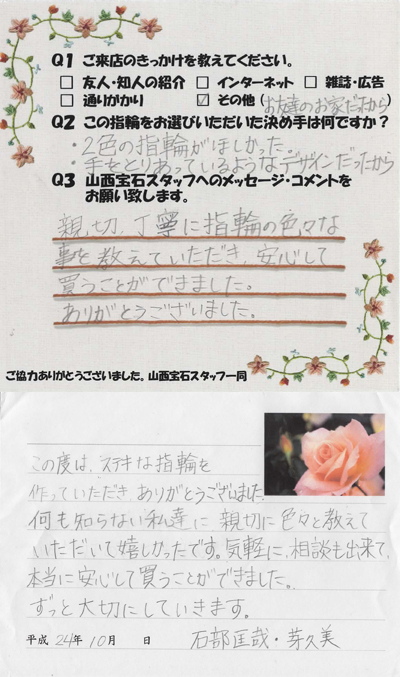 Q1 ご来店のきっかけを教えてください。
□ 友人・知人の紹介 □ インターネット □ 雑誌・広告
□ 通りがかり ☑ その他(お友達のお家だったから)
Q2 この指輪をお選びいただいた決め手は何ですか？
・2色の指輪がほしかった。
・手をとりあっているようなデザインだったから
Q3 山西宝石スタッフへのメッセージ・コメントを
お願い致します。
親切、丁寧に指輪の色々な
事を教えていただき、安心して
買うことができました。
ありがとうございました。
ご協力ありがとうございました。山西宝石スタッフ一同
この度は、ステキな指輪を
作っていただき、ありがとうございました。
何も知らない私達に親切に色々と教えて
いただいて嬉しかったです。気軽に、相談も出来て、
本当に安心して買うことができました。
ずっと大切にしていきます。
平成 24年 10月 日 石部匡哉・芽久美